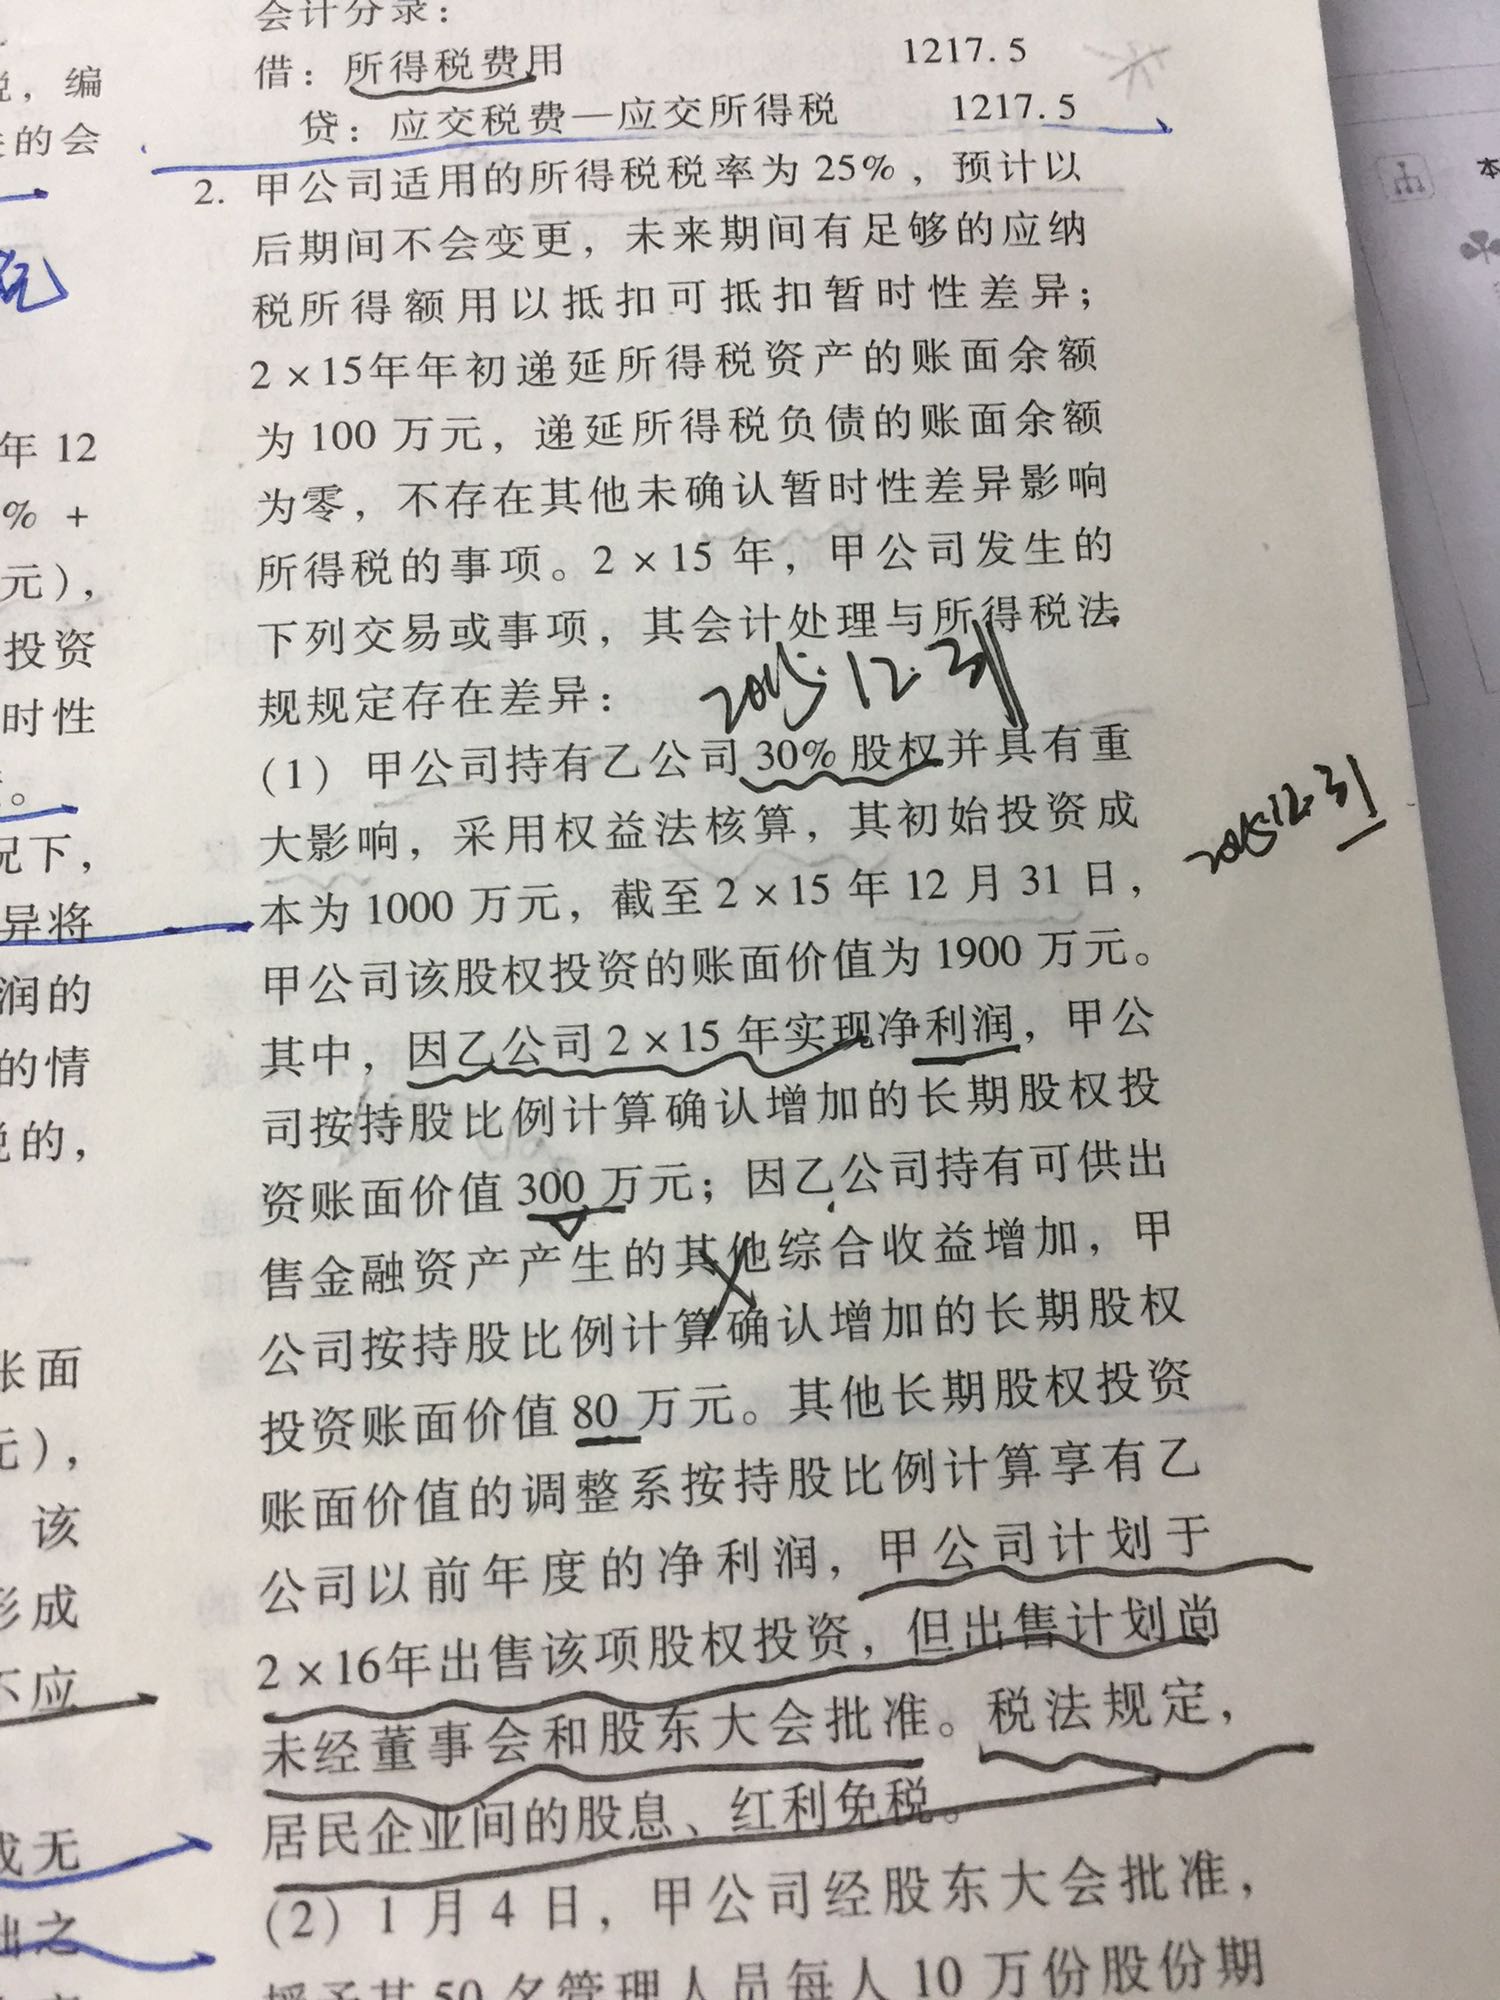 会计分录：
借：所得税费用 1217.5
贷：应交税费—应交所得税 1217.5
2. 甲公司适用的所得税税率为25%，预计以
后期间不会变更，未来期间有足够的应纳
税所得额用以抵扣可抵扣暂时性差异；
2×15年年初递延所得税资产的账面余额
为100万元，递延所得税负债的账面余额
为零，不存在其他未确认暂时性差异影响
所得税的事项。2×15年，甲公司发生的
下列交易或事项，其会计处理与所得税法
规规定存在差异：
2015.12.31
（1）甲公司持有乙公司30%股权并具有重
大影响，采用权益法核算，其初始投资成
本为1000万元，截至2×15年12月31日，
甲公司该股权投资的账面价值为1900万元。
其中，因乙公司2×15年实现净利润，甲公
司按持股比例计算确认增加的长期股权投
资账面价值300万元；因乙公司持有可供出
售金融资产产生的其他综合收益增加，甲
公司按持股比例计算确认增加的长期股权
投资账面价值80万元。其他长期股权投资
账面价值的调整系按持股比例计算享有乙
公司以前年度的净利润，甲公司计划于
2×16年出售该项股权投资，但出售计划尚
未经董事会和股东大会批准。税法规定，
居民企业间的股息、红利免税。
（2）1月4日，甲公司经股东大会批准，
授予其50名管理人员每人10万份股份期
2015.12.31
税，编
的会
年12
% +
元），
投资
时性
况下，
异将
润的
的情
的，
账面
元），
该
形成
不应
成无
础之
本